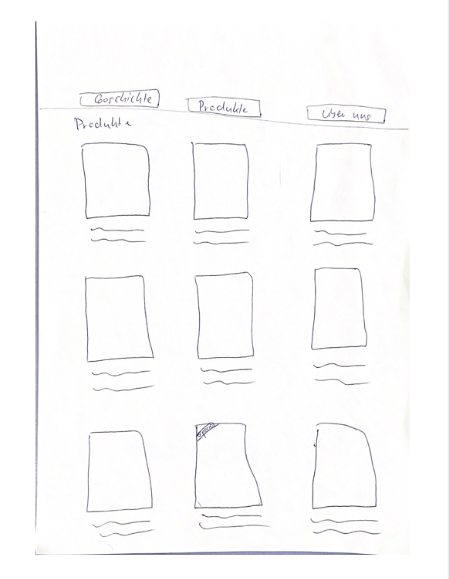 Geschichte
Produkte
Über uns
Produkte